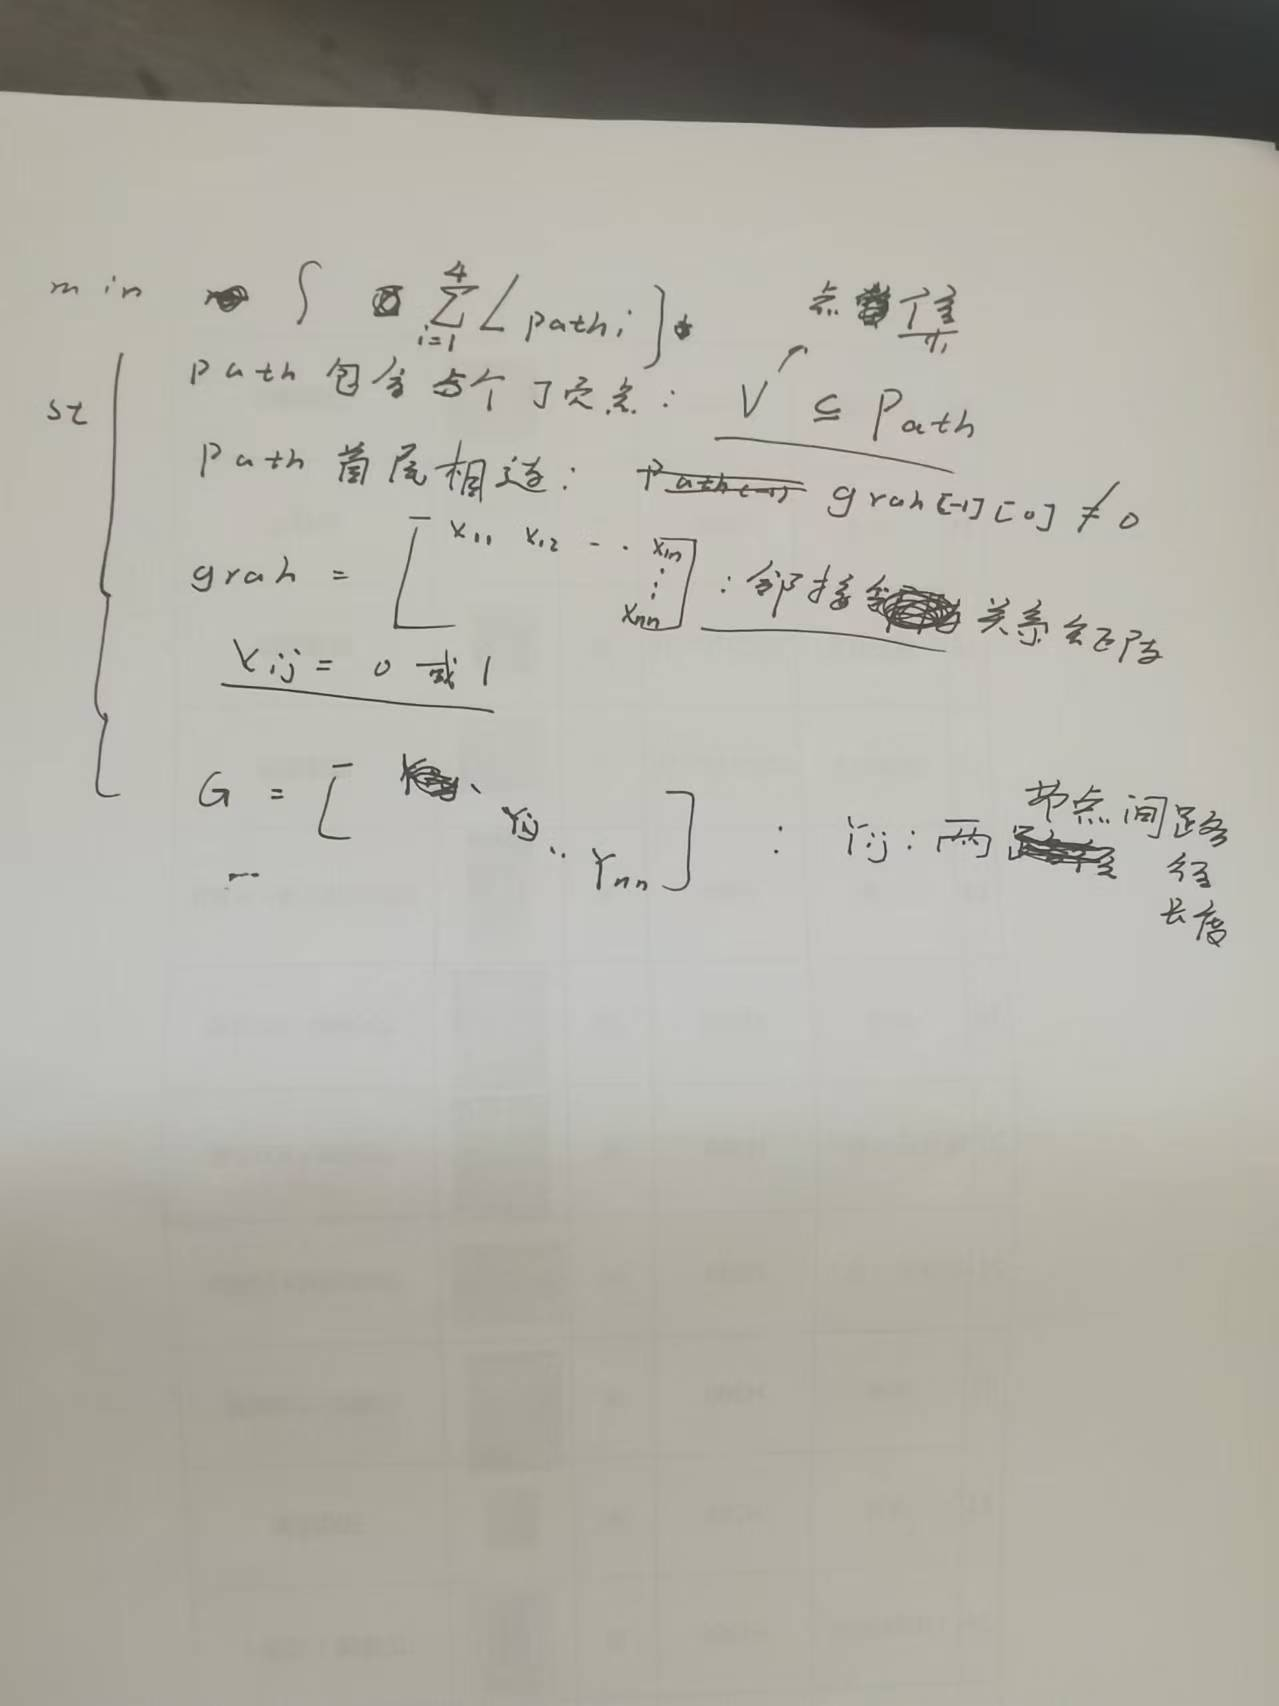 min { \sum_{i=1}^{4} L path_i }
st
path 包含每个顶点: V ⊆ Path
点
Path 首尾相连: grah[-1][0] ≠ 0
grah = [ x_{11} x_{12} -- · x_{1n} ⋮ x_{nn} ] : 邻接 关系矩阵
x_{ij} = 0 或 1
G = [ · Y_{ij} ·· Y_{nn} ] : Y_{ij}: 两节点间路径长度